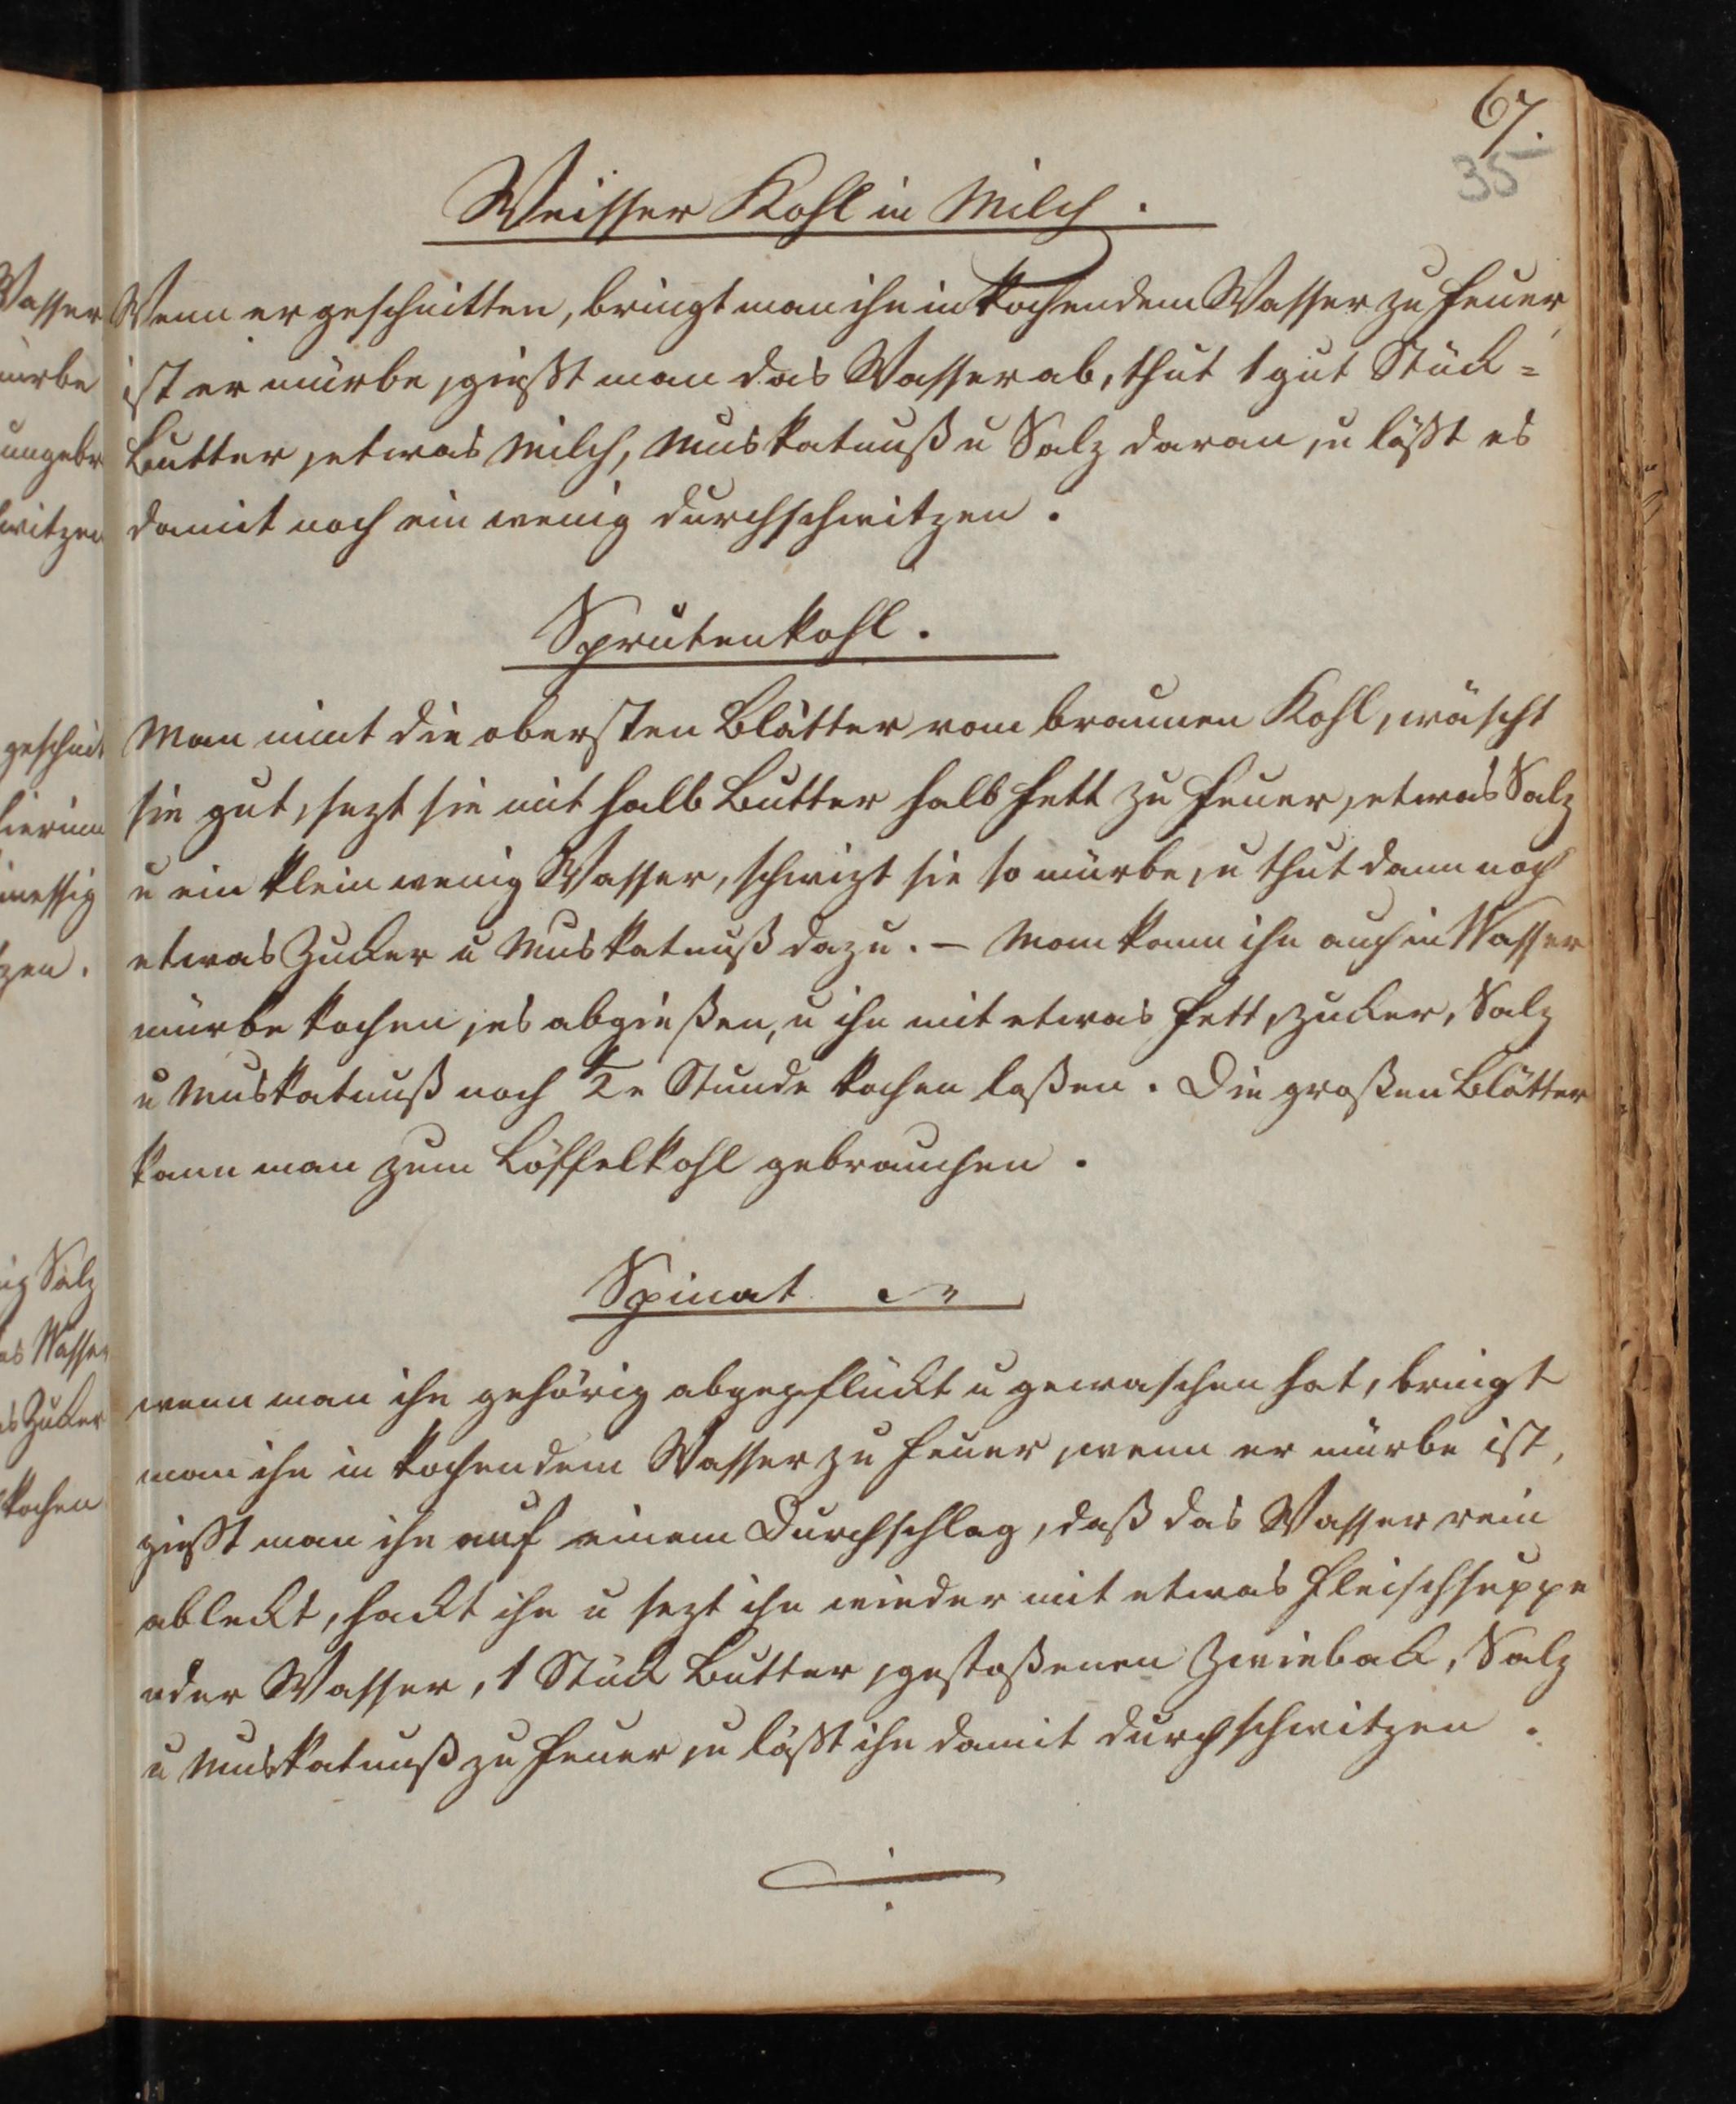 67.
35
Weisser Kohl in Milch.
Wenn er geschnitten, bringt man ihn in kochendem Wasser zu Feuer,
ist er mürbe, gießt man das Wasser ab, thut 1 gut Stück-
Butter, etwas Milch, Muskatnuß u Salz daran, u läßt es
damit noch ein wenig durchschwitzen.
Sprutenkohl.
Man nimt die obersten Blätter vom braunen Kohl, wäscht
sie gut, sezt sie mit halb Butter halb Fett zu Feuer, etwas Salz
u ein klein wenig Wasser, schwizt sie so mürbe, u thut dann noch
etwas Zucker u Muskatnuß dazu. – Man kann ihn auch in Wasser
mürbe kochen, es abgießen, u ihn mit etwas Fett, Zucker, Salz
u Muskatnuß noch ½ Stunde kochen laßen. Die großen Blätter
kann man zum Löffelkohl gebrauchen.
Spinat
wenn man ihn gehörig abgepflückt u gewaschen hat, bringt
man ihn in kochendem Wasser zu Feuer, wenn er mürbe ist,
gießt man ihn auf einem Durchschlag, daß das Wasser rein
ableckt, hackt ihn u sezt ihn wieder mit etwas Fleischsuppe
oder Wasser, 1 Stück Butter, gestoßenen Zwieback, Salz
u Muskatnuß zu Feuer, u läßt ihn damit durchschwitzen.